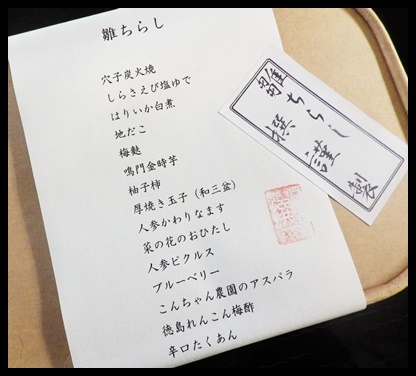 雛ちらし
穴子炭火焼
しらさえび塩ゆで
はりいか白煮
地だこ
梅麩
鳴門金時芋
柚子柿
厚焼き玉子（和三盆）
人参かわりなます
菜の花のおひたし
人参ピクルス
ブルーベリー
こんちゃん農園のアスパラ
徳島れんこん梅酢
辛口たくあん
雛ちらし
撰
謹製